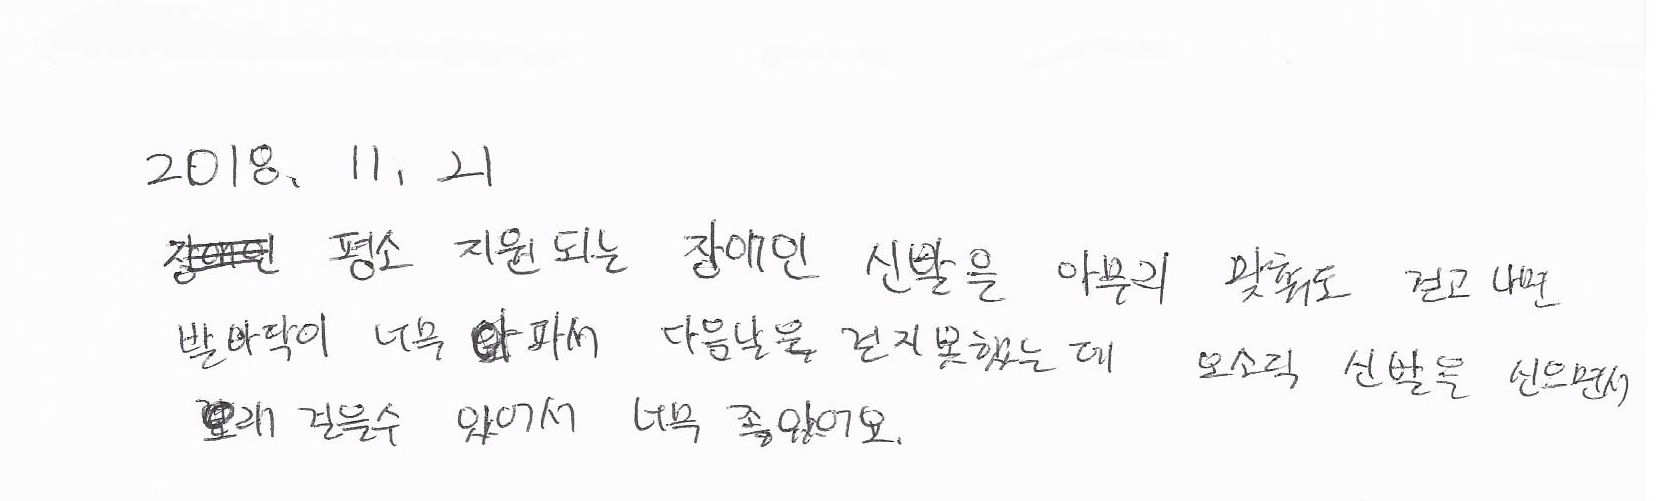 2018. 11. 21
평소 지원되는 장애인 신발을 아무리 맞춰도 걷고 나면
발바닥이 너무 아파서 다음날은 걷지못했는데 오소릭 신발을 신으면서
오래 걸을수 있어서 너무 좋았어요.